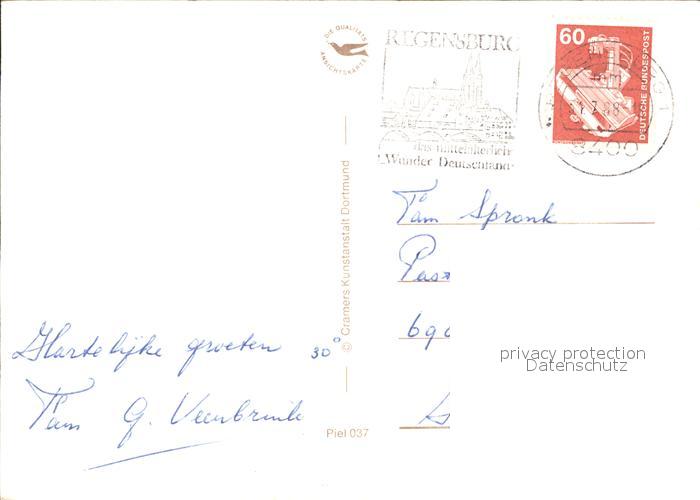 DIE QUALITÄTS
ANSICHTSKARTE
REGENSBURG
das mittelalterliche
Wunder Deutschlands
60
DEUTSCHE BUNDESPOST
8400
© Cramers Kunstanstalt Dortmund
Fam Spronk
Hartelijke groeten 30°
Fam G.
Piel 037
privacy protection
Datenschutz